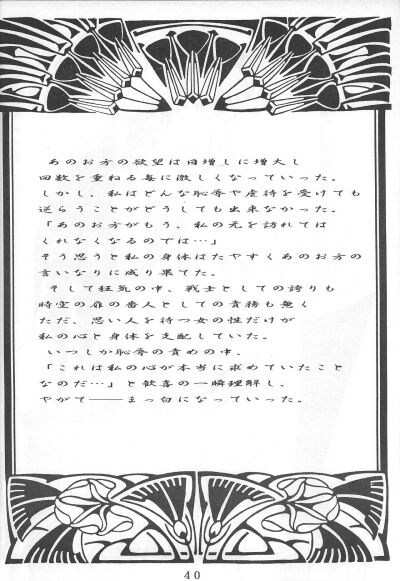 あのお方の欲望は日増しに増大し
回数を重ねる毎に激しくなっていった。
しかし、私はどんな恥辱や虐待を受けても
逆らうことがどうしても出来なかった。
「あのお方がもう、私の元を訪れては
くれなくなるのでは…」
そう思うと私の身体はたやすくあのお方の
言いなりに成り果てた。
そして狂気の中、戦士としての誇りも
時空の扉の番人としての責務も無く
ただ、思い人を待つ女の性だけが
私の心と身体を支配していた。
いつしか恥辱の責めの中、
「これは私の心が本当に求めていたこと
なのだ…」と歓喜の一瞬理解し、
やがて――まっ白になっていった。
40